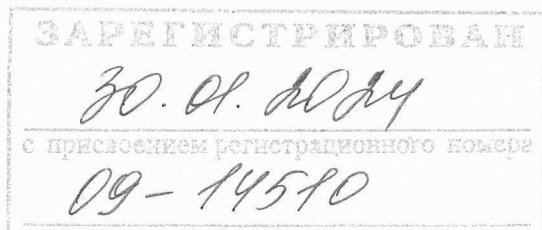 ЗАРЕГИСТРИРОВАН
30.01.2024
с присвоением регистрационного номера
09-14510